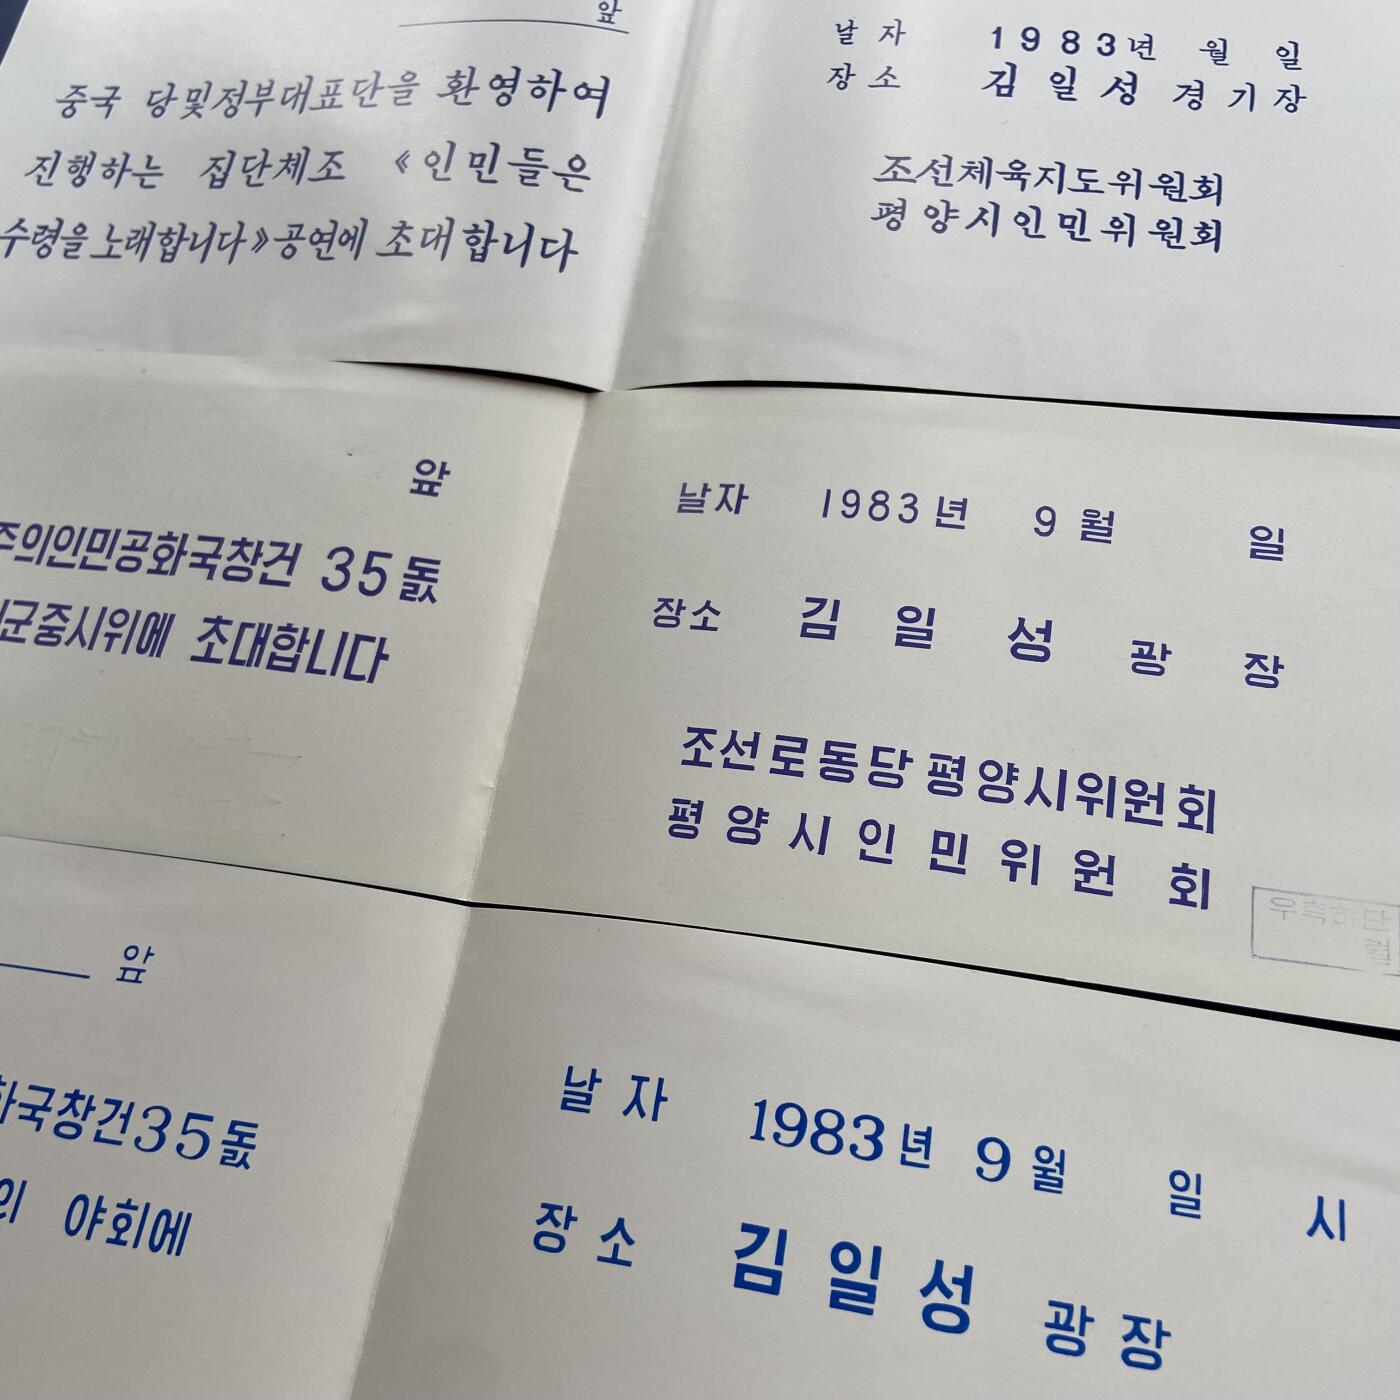 앞
중국 당및정부대표단을 환영하여
진행하는 집단체조 《인민들은
수령을 노래합니다》공연에 초대합니다
날 자 1983년 월 일
장 소 김 일 성 경 기 장
조선체육지도위원회
평양시인민위원회
앞
주의인민공화국창건 35돐
군중시위에 초대합니다
날자 1983년 9월 일
장소 김 일 성 광 장
조선로동당평양시위원회
평양시인민위원회
앞
화국창건35돐
의 야회에
날 자 1983년 9월 일 시
장 소 김 일 성 광 장